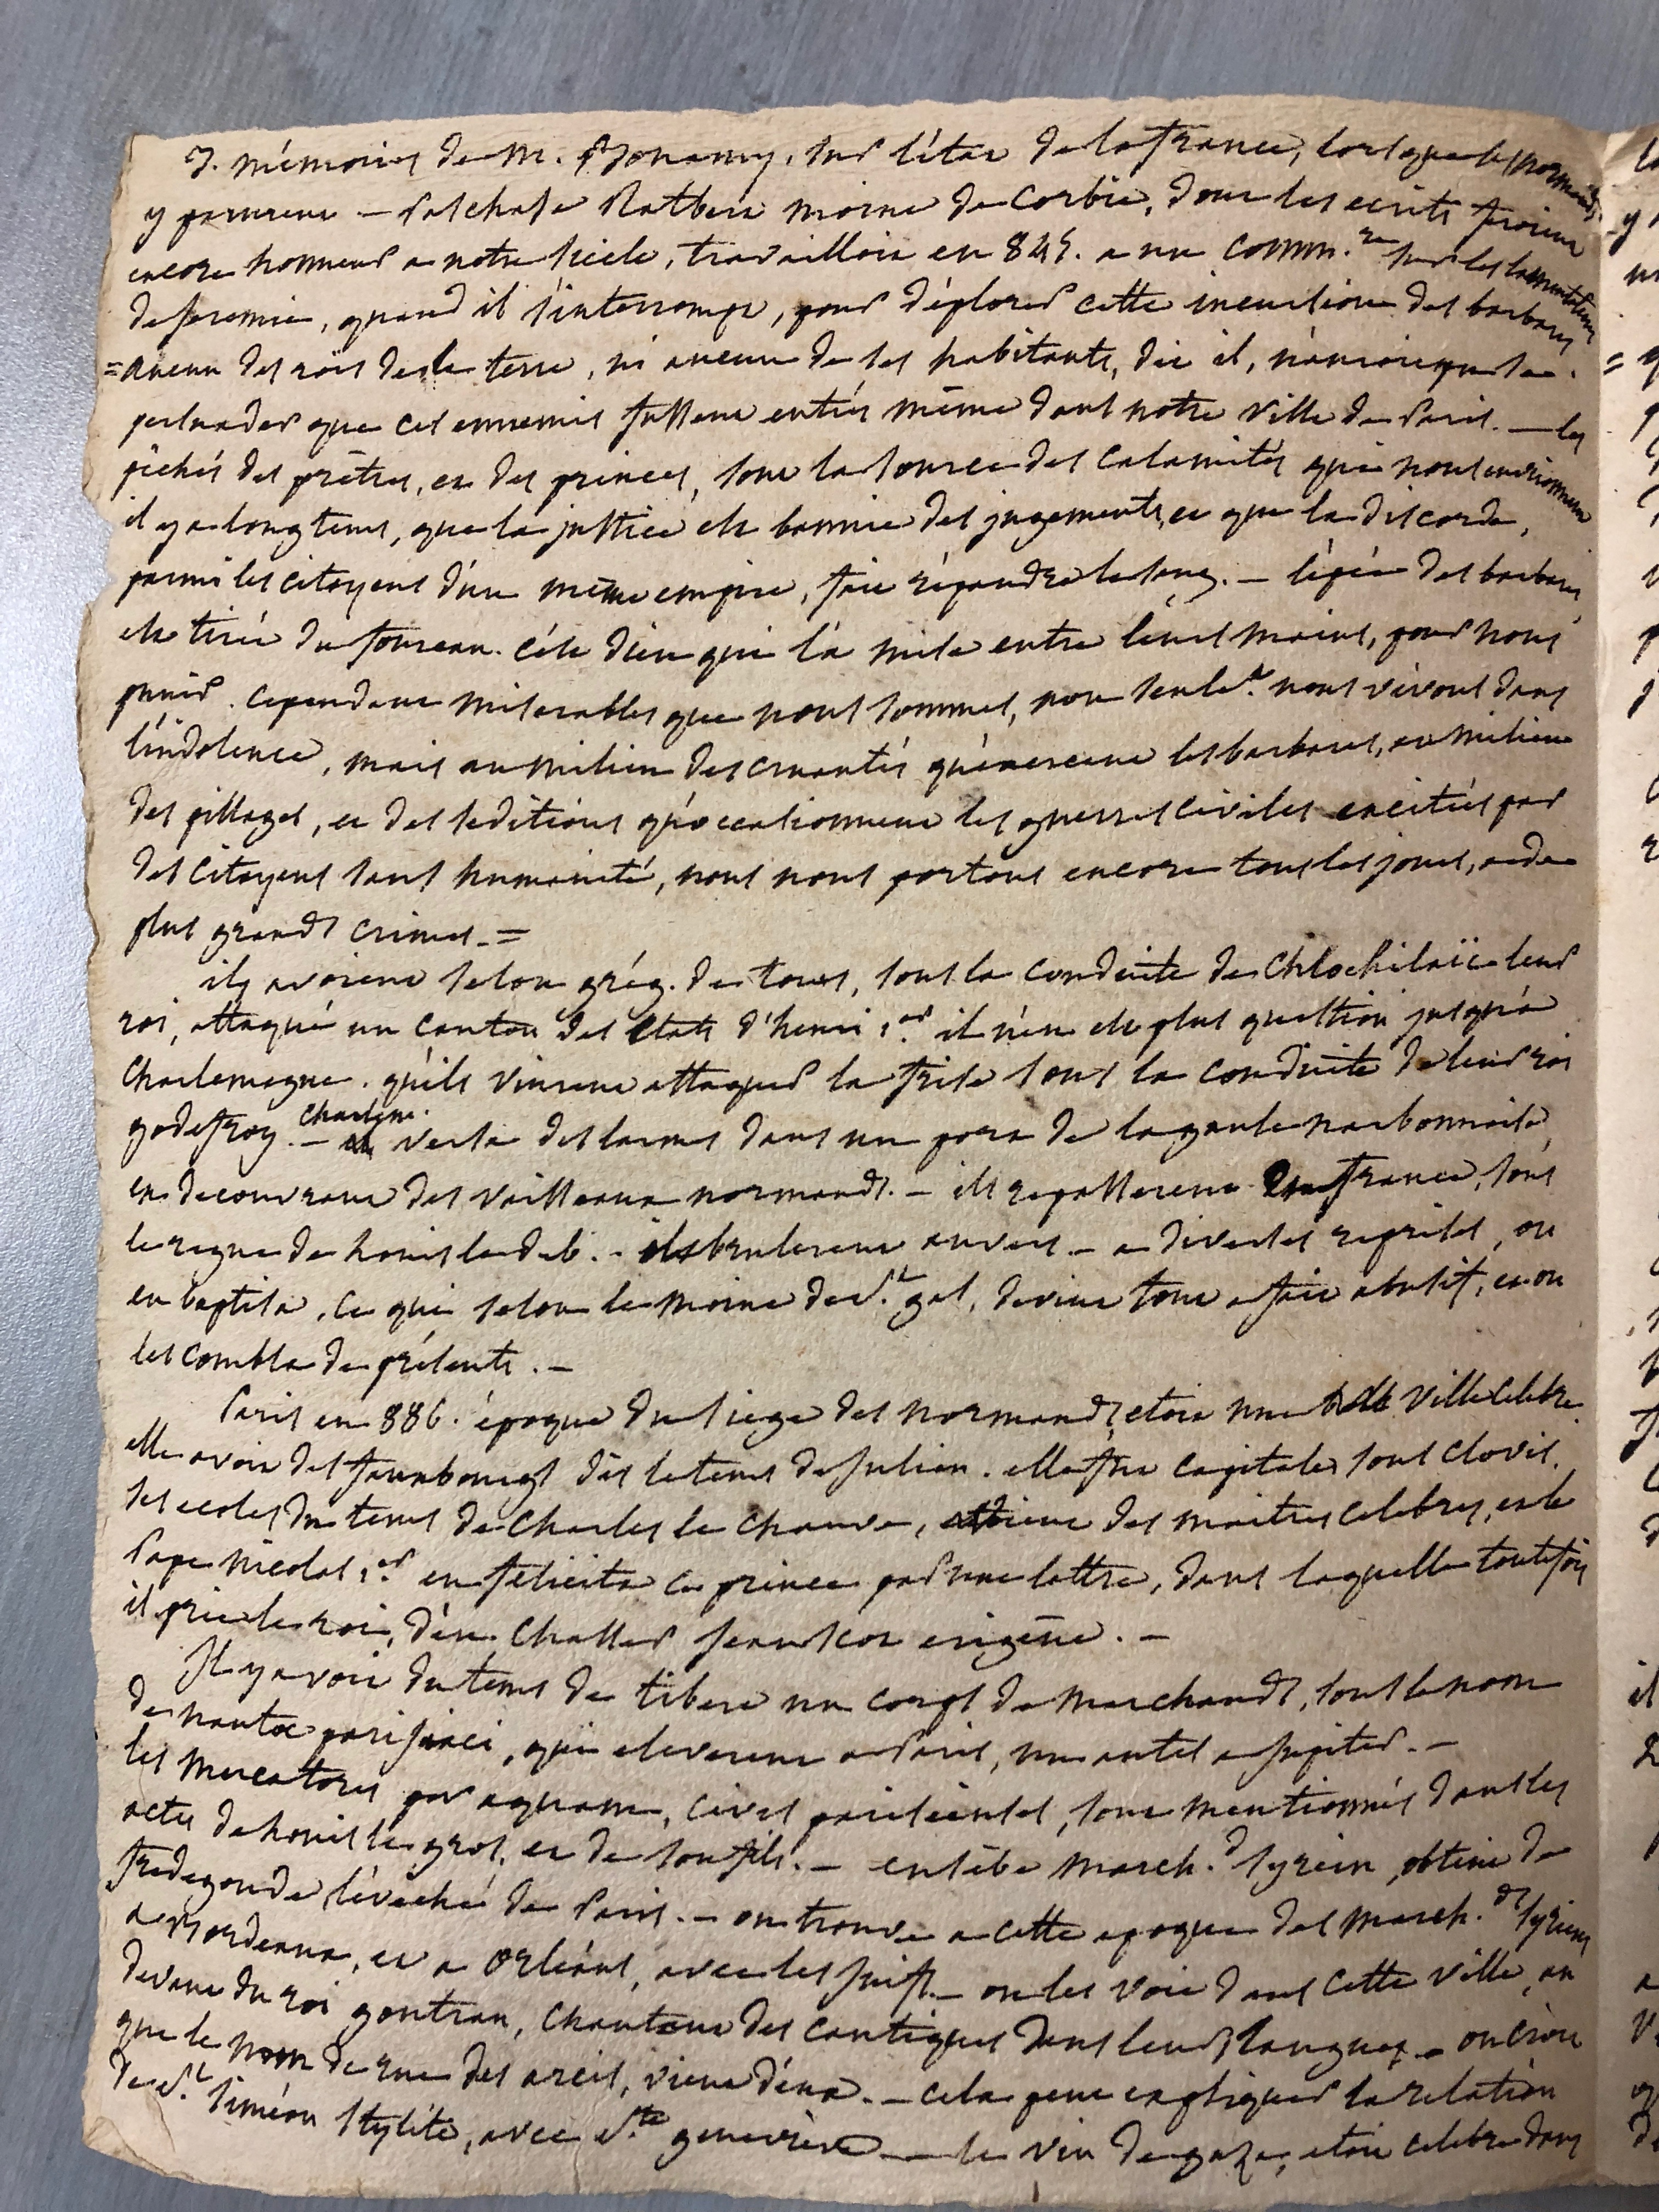 J. mémoires de M. Bonamy, sur l'état de la france, lorsque les normands
y parurent – Paschase Ratbert moine de Corbie, dont les ecrits feroient
encore honneur a notre siecle, travailloit en 845. a un comm.re sur les lamentations
de Jeremie, quand il s'interrompt, pour déplorer cette incursion des barbares
= aucun des rois de la terre, ni aucun de ses habitants, dit il, n'auroit pu se
persuader que ces ennemis fussent entrés même dans notre ville de Paris. – les
péchés des prêtres, et des princes, sont la source des calamités qui nous environnent
il y a longtems, que la justice est bannie des jugements, et que la discorde,
parmi les citoyens d'un même empire, fait répandre le sang. – l'épée des barbares
est tirée du foureau. c'est dieu qui l'a mise entre leurs mains, pour nous
punir. cependant miserables que nous sommes, non seulem.t nous vivons dans
l'indolence, mais au milieu des cruautés qu'exercent les barbares, au milieu
des pillages, et des seditions qu'occasionnent les guerres civiles excitées par
des citoyens sans humanité, nous nous portons encore tous les jours, a de
plus grands crimes. =
ils avoient selon grég. de tours, sous la conduite de Chlochilaïc leur
roi, attaqué un canton des Etats d'
il n'en est plus question jusqu'a
Charlemagne. qu'ils vinrent attaquer la frise sous la conduite de leur roi
godefroy. – Charlem. versa des larmes dans un port de la gaule narbonnoise,
en decouvrant des vaisseaux normands. – ils repasserent en france, sous
le regne de Louis le deb. – ils brulerent anvers – a diverses reprises, on
en baptisa, ce qui selon le moine de S.t gal, devint tout a fait abusif, et on
les combla de présents. –
Paris en 886. époque du siege des normands, etoit une ville celebre.
elle avoit des fauxbourgs dès le tems de Julien. elle fut capitale sous Clovis.
ses ecoles du tems de Charles le Chauve, des maitres celebres, et le
Pape Nicolas 1.er en félicita ce prince par une lettre, dans laquelle toutefois
il prie le roi, d'en chasser Jean scot erigène. –
Il y avoit du tems de tibere un corps de marchands, sous le nom
de nautæ parisiaci, qui eleverent a Paris, un autel a Jupiter. –
les mercatores per aquam, cives parisienses, sont mentionnés dans les
actes de Louis le gros, et de son fils. – eusèbe march.d syrien, obtint de
fredegonde l'évêché de Paris. – on trouve a cette epoque des march.ds syriens
a Bordeaux, et a Orléans, avec les juifs. – on les voit dans cette ville, au
devant du roi gontran, chantant des cantiques dans leurs langues – on croit
que le nom de rue des arcis, vient d'eux. – cela peut expliquer la relation
de S.t Siméon Stylite, avec S.te geneviève – le vin de gaza, etoit celebre dans